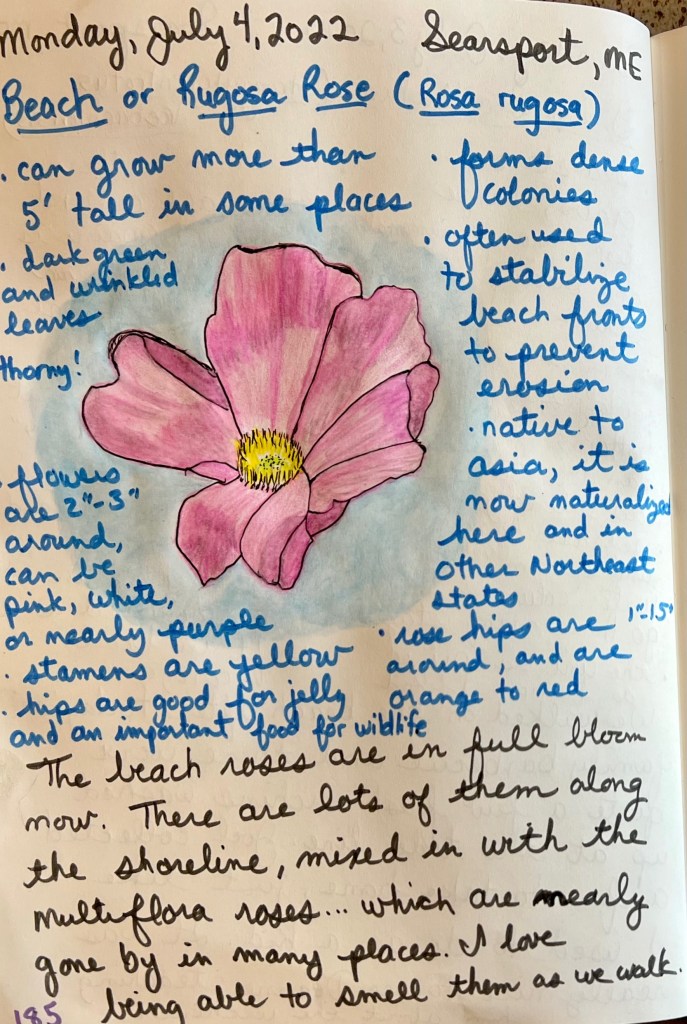 Monday, July 4, 2022 Searsport, ME
Beach or Rugosa Rose (Rosa rugosa)
· can grow more than
5' tall in some places
· dark green
and wrinkled
leaves
thorny!
· flowers
are 2"-3"
around,
can be
pink, white,
or nearly purple
· stamens are yellow
· hips are good for jelly
and an important food for wildlife
· forms dense
colonies
· often used
to stabilize
beach fronts
to prevent
erosion
· native to
asia, it is
now naturalized
here and in
other Northeast
states
· rose hips are 1"-1.5"
around, and are
orange to red
The beach roses are in full bloom
now. There are lots of them along
the shoreline, mixed in with the
multiflora roses... which are nearly
gone by in many places. I love
being able to smell them as we walk.
185